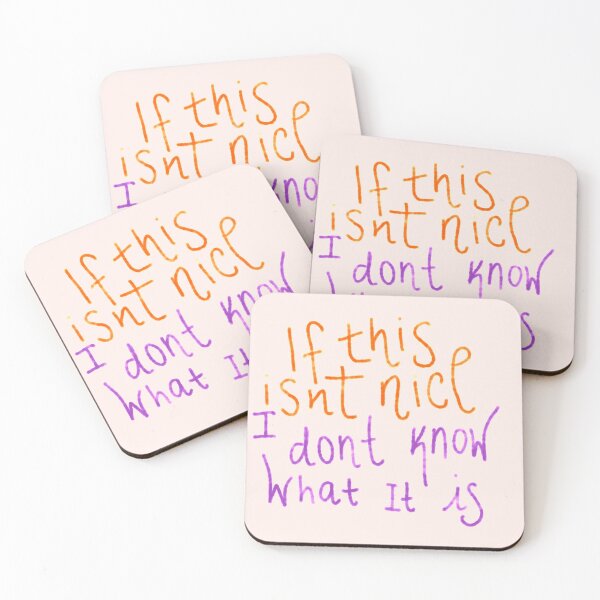 If this
isnt nice
I
If this
isnt nice
I dont know
is
If this
isnt nice
I dont know
What It
If this
isnt nice
I dont know
What It is